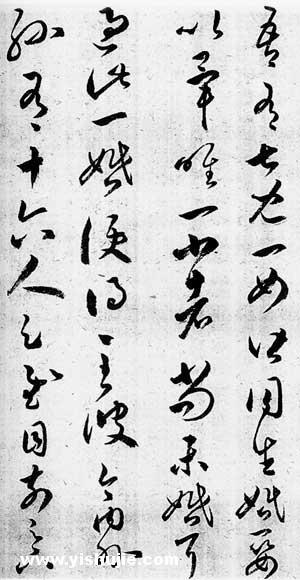 吾有七兒一女皆同生婚娶
以畢唯一小者尚未婚耳
過此一婚便得至彼今內外
孫有十六人足慰目前足
www.yishujie.com